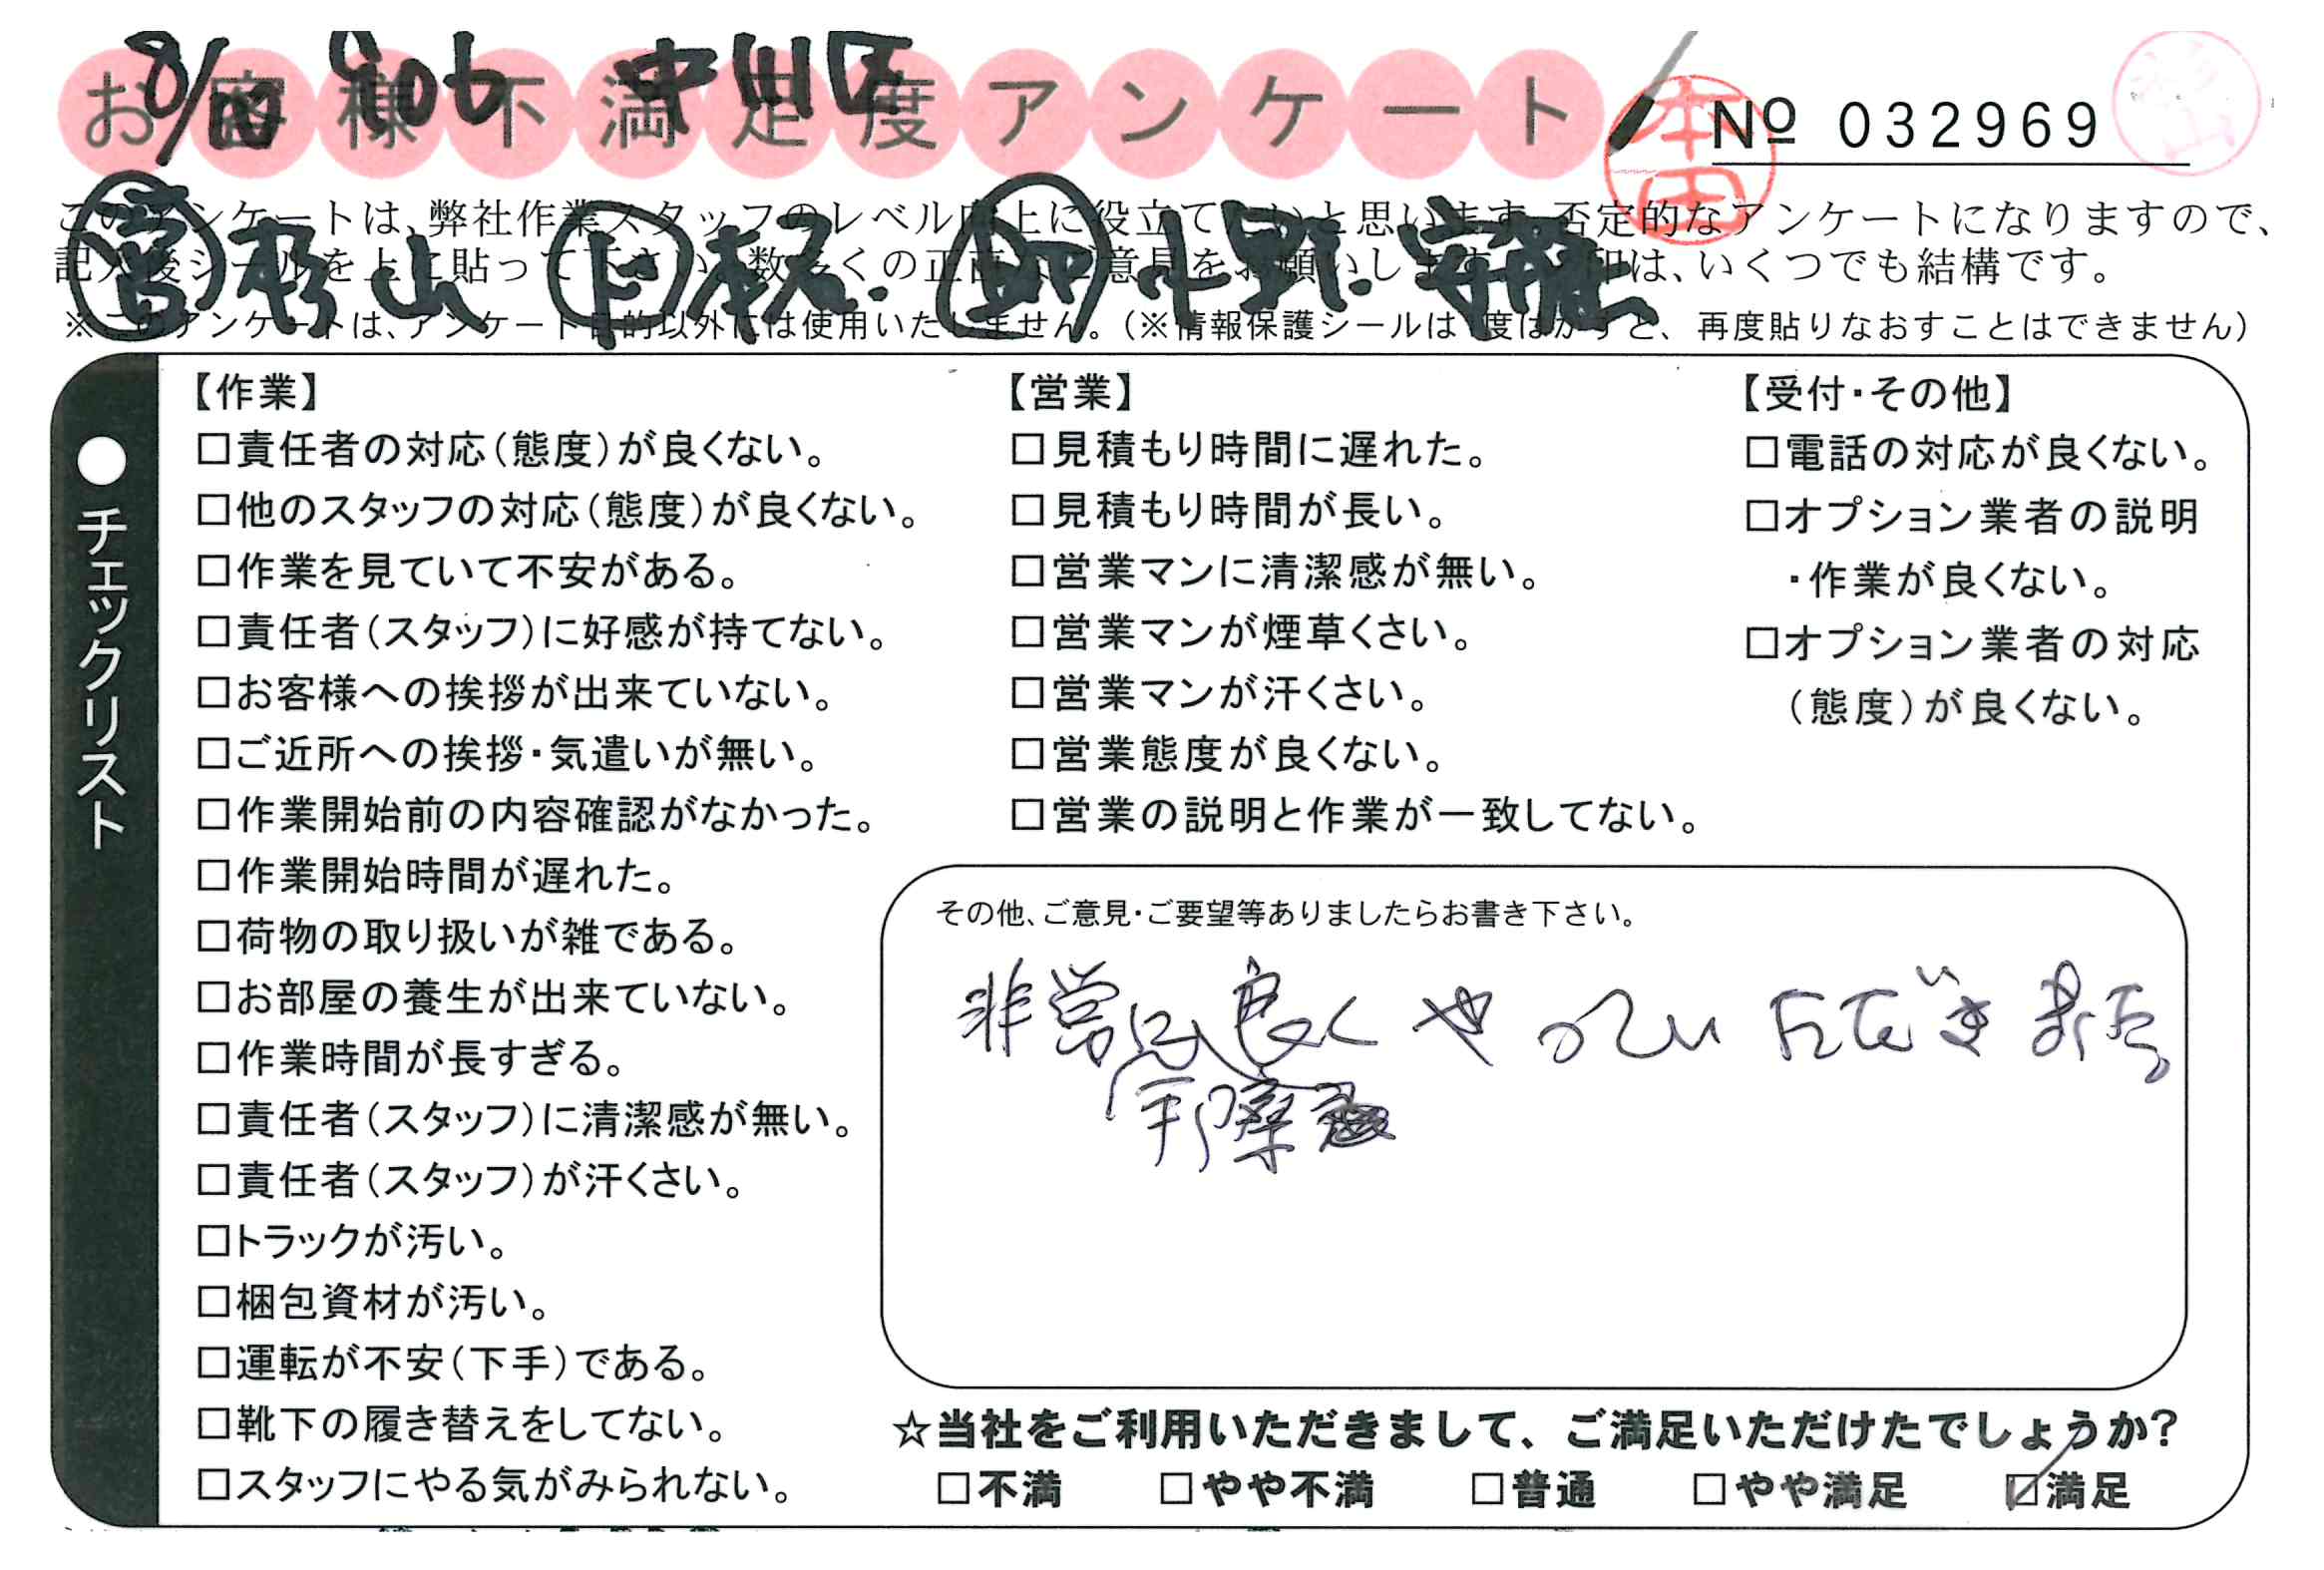 8/10 中川区
お客様不満足度アンケート
本田
№ 032969
このアンケートは、弊社作業スタッフのレベル向上に役立てたいと思います。否定的なアンケートになりますので、
営 杉山 助 小野.
記入後シールを上に貼って下さい。数多くの正直なご意見をお願いします。印は、いくつでも結構です。
※このアンケートは、アンケート目的以外には使用いたしません。（※情報保護シールは1度はがすと、再度貼りなおすことはできません）
●チェックリスト
【作業】
□責任者の対応（態度）が良くない。
□他のスタッフの対応（態度）が良くない。
□作業を見ていて不安がある。
□責任者（スタッフ）に好感が持てない。
□お客様への挨拶が出来ていない。
□ご近所への挨拶・気遣いが無い。
□作業開始前の内容確認がなかった。
□作業開始時間が遅れた。
□荷物の取り扱いが雑である。
□お部屋の養生が出来ていない。
□作業時間が長すぎる。
□責任者（スタッフ）に清潔感が無い。
□責任者（スタッフ）が汗くさい。
□トラックが汚い。
□梱包資材が汚い。
□運転が不安（下手）である。
□靴下の履き替えをしてない。
□スタッフにやる気がみられない。
【営業】
□見積もり時間に遅れた。
□見積もり時間が長い。
□営業マンに清潔感が無い。
□営業マンが煙草くさい。
□営業マンが汗くさい。
□営業態度が良くない。
□営業の説明と作業が一致してない。
【受付・その他】
□電話の対応が良くない。
□オプション業者の説明
・作業が良くない。
□オプション業者の対応
（態度）が良くない。
その他、ご意見・ご要望等ありましたらお書き下さい。
非常に良くやっていただきました
手際
☆当社をご利用いただきまして、ご満足いただけたでしょうか？
□不満 □やや不満 □普通 □やや満足 ☑満足